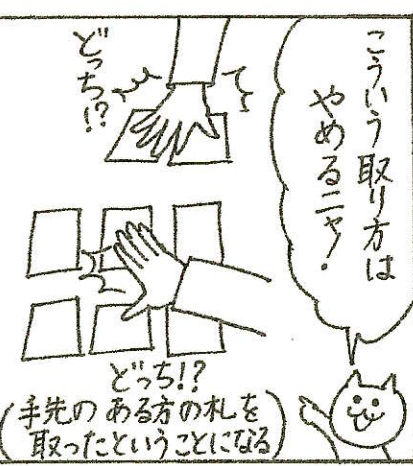 こういう取り方は
やめるニャ!
どっち!?
どっち!?
(手先のある方の札を
取ったということになる)